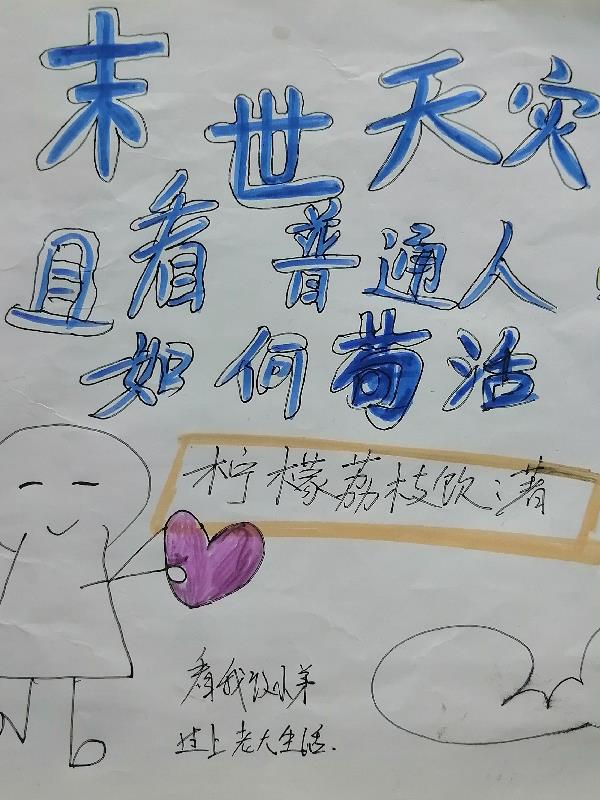 末世天灾
且看普通人
如何苟活
柠檬荔枝饮:著
看我 小弟
过上老大生活.